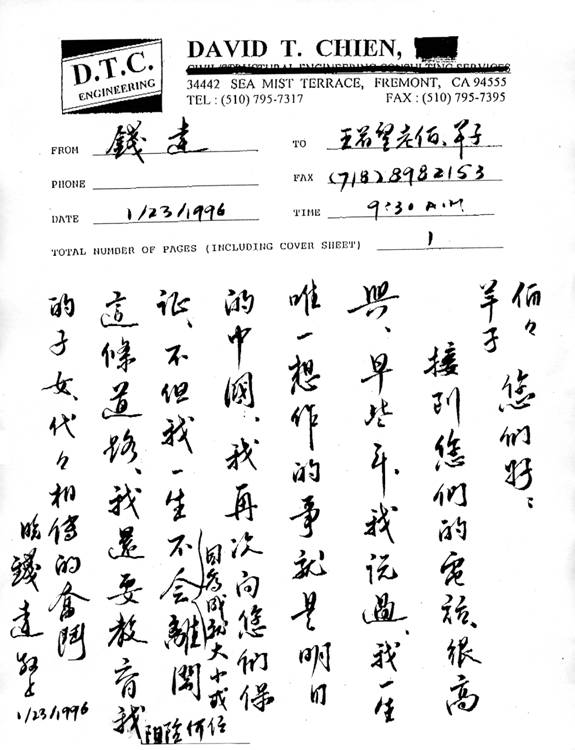 D.T.C.
ENGINEERING
DAVID T. CHIEN,
CIVIL/STRUCTURAL ENGINEERING CONSULTING SERVICES
34442 SEA MIST TERRACE, FREMONT, CA 94555
TEL : (510) 795-7317 FAX : (510) 795-7395
FROM 錢達 TO 王若望老伯、羊子
PHONE FAX (718)8982153
DATE 1/23/1996 TIME 9:30 A.M
TOTAL NUMBER OF PAGES (INCLUDING COVER SHEET) 1
伯々
羊子 您們好:
接到您們的電話、很高
興、早些年、我説過、我一生
唯一想作的事就是明日
的中國、我再次向您們保
証、不但我一生不会離開
因為成就大小或任
何險阻
這條道路、我還要教育我
的子女、代々相傳的奮鬥
晚 錢達 敬上
1/23/1996